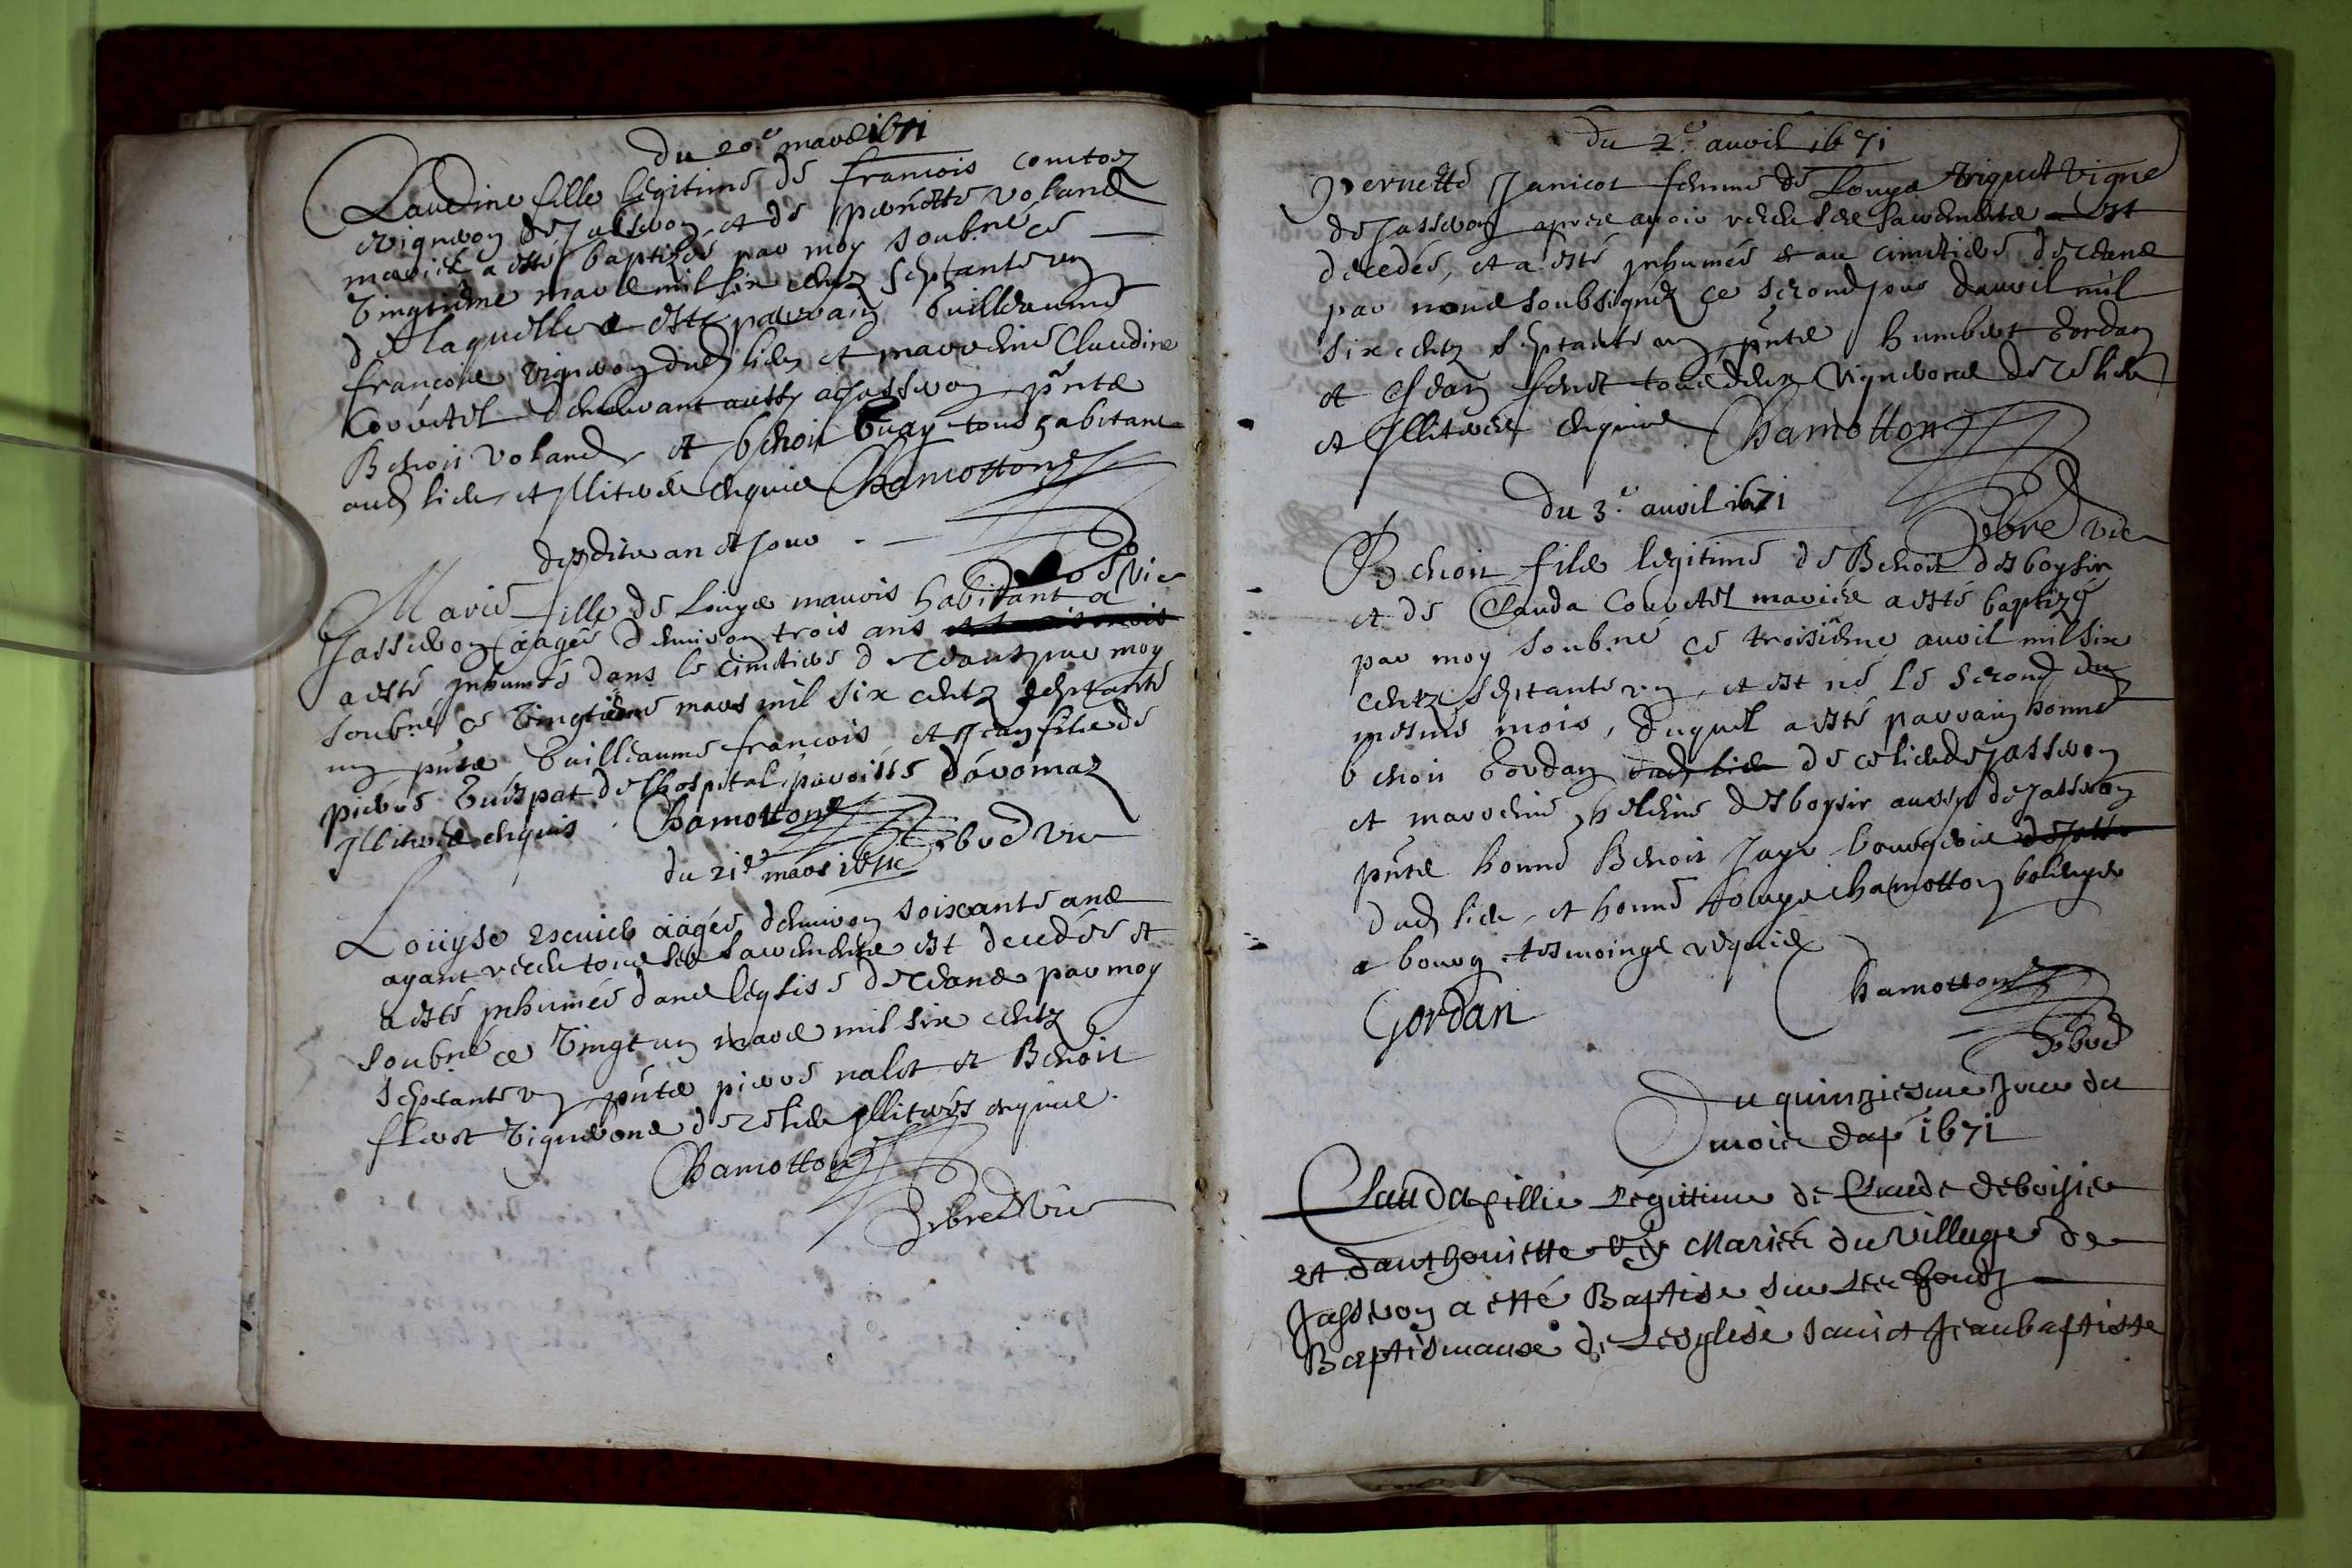 du 20.e mars 1671
Claudine fille legitime de francois comtoz
vigneron de Jasseron et de pernette voland
mariés a esté baptizée par moy soubne ce
vingtieme mars mil six centz septante un
de laquelle a esté parrain Guilleaume
francois vigneron dud lieu et marreine Claudine
Convert demeurant aussy a Jasseron pntz
Benoit voland et benoit Guay tous habitans
aud lieu et illiterés enquis Chamotton
desdits an et jour
Marie fille de Louys mauris habitant a
Jasseron aagée d'environ trois ans
a esté inhumée dans le cimetiere de ceans par moy
soubne ce vingtieme mars mil six centz septante
un pntz Guilleaume francois et Jean filz de
pierre de lhospital paroisse daromaz
Illiterés enquis Chamotton
Debred vic
du 21e mars 1671
Louyse aagée d'environ soixante ans
ayant receu tous ses sacrements est decedée et
a esté inhumée dans leglise de ceans par moy
soubne ce vingt un mars mil six centz
septante un pntz pierre nalet et Benoit
vignerons de ce lieu illiterés enquis.
Chamotton
Debred vic
du 2.e avril 1671
pernette Janicot femme de Louys triquet vigne
de Jasseron apres avoir receu ses sacrements est
decedée, et a esté inhumée au cimetiere de ceans
par nous soubsignez ce second jour davril mil
six centz septante un pntz humbert Gordan
et Jean tous deux vignerons de ce lieu
et Illiterés enquis Chamotton
Debred vic
du 3.e avril 1671
Benoit filz legitime de Benoit desboysir
et de Clauda Convert mariés a esté baptizé
par moy soubne ce troisieme avril mil six
centz septante un, et est né le second du
mesme mois, duquel a esté parrain honne
benoit Gordan de ce lieu de Jasseron
et marreine heleine desboysir aussy de Jasseron
pntz honne Benoit Jayr bourgeois
dud lieu, et honne Louys chamotton
a bourg tesmoings requis
Gordan Chamotton
Debred
Du quinziesme Jour du
mois dap 1671
Clauda fillie Legittime de Claude deboisie
et danthoinette Mariés du village de
Jasseron a etté Baptise sur Les fondz
Baptismaux de Lesglise sainct Jeanbaptiste